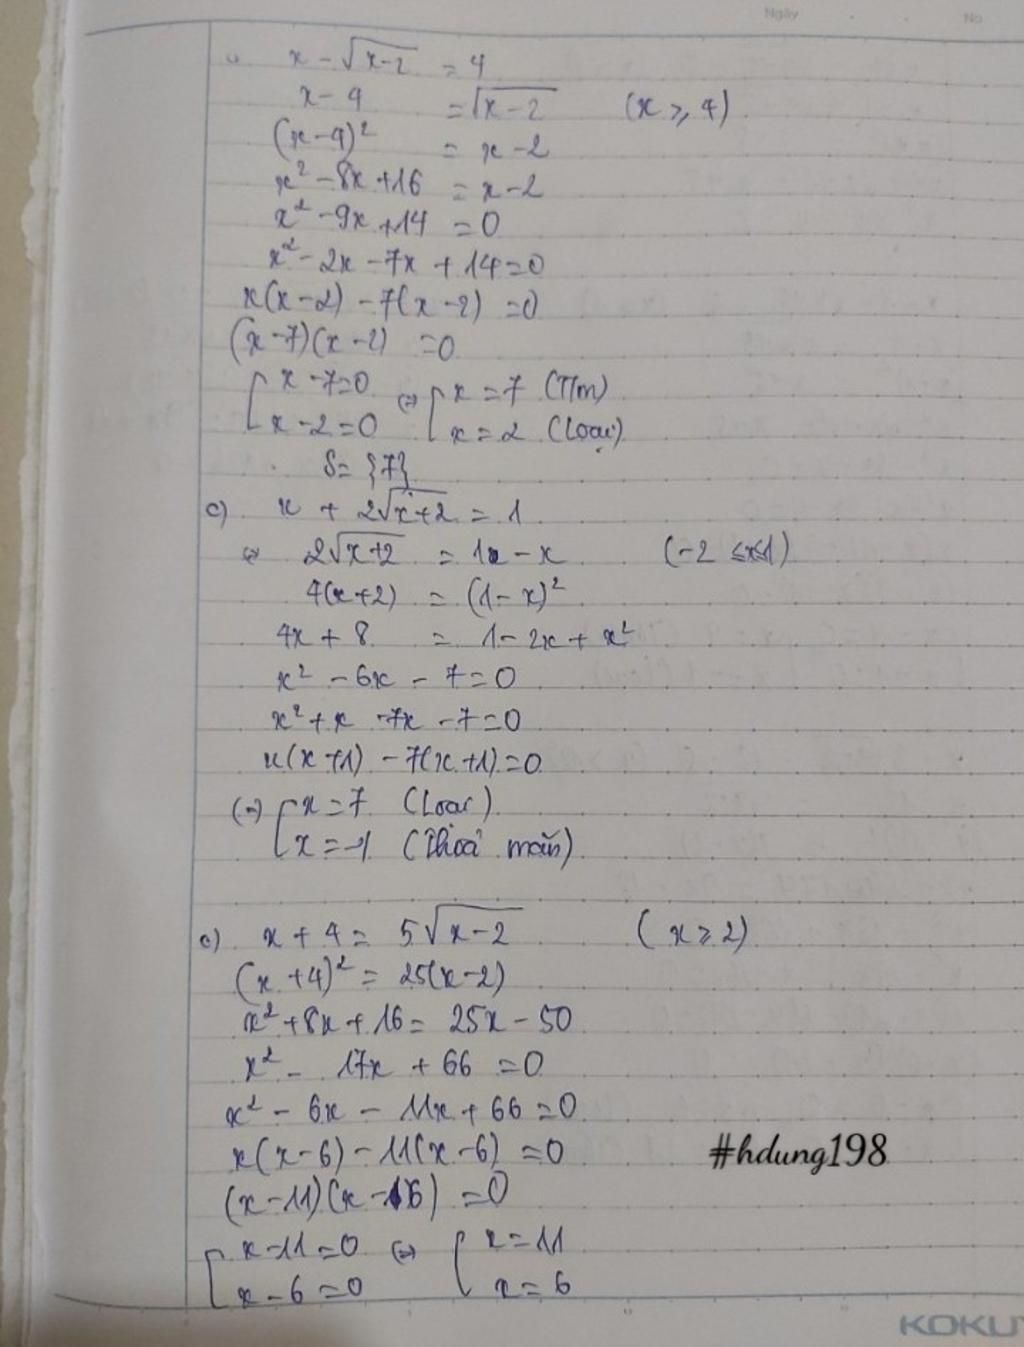 Ngày No
x - √(x-2) = 4
x - 4 = √(x-2) (x ≥ 4)
(x-4)² = x-2
x² - 8x + 16 = x-2
x² - 9x + 14 = 0
x² - 2x - 7x + 14 = 0
x(x-2) - 7(x-2) = 0
(x-7)(x-2) = 0
[ x-7=0 (=) [ x = 7 (T/m)
x-2=0 x = 2 (Loại)
S = {7}
c) x + 2√(x+2) = 1
(=) 2√(x+2) = 1 - x (-2 ≤ x ≤ 1)
4(x+2) = (1-x)²
4x + 8 = 1 - 2x + x²
x² - 6x - 7 = 0
x² + x - 7x - 7 = 0
x(x+1) - 7(x+1) = 0
(=) [ x = 7 (Loại)
x = -1 (Thoả mãn)
e) x + 4 = 5√(x-2) (x ≥ 2)
(x+4)² = 25(x-2)
x² + 8x + 16 = 25x - 50
x² - 17x + 66 = 0
x² - 6x - 11x + 66 = 0
x(x-6) - 11(x-6) = 0
#hdung198
(x-11)(x-6) = 0
[ x-11=0 (=) [ x = 11
x-6=0 x = 6